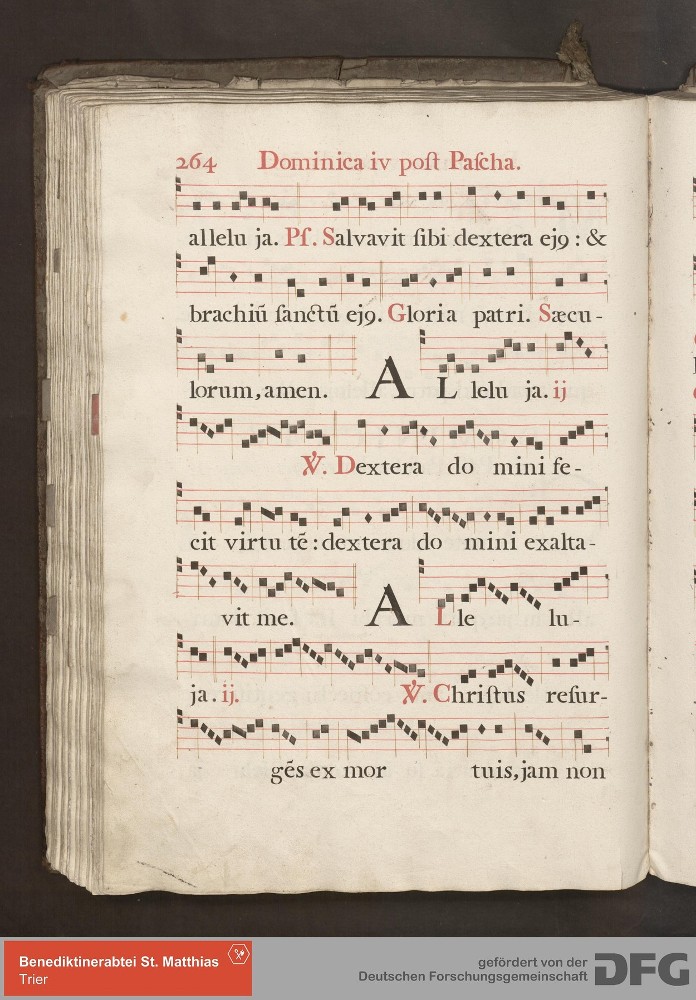 264 Dominica iv poſt Paſcha.
allelu ja. Pſ. Salvavit ſibi dextera ejꝰ : &
brachiū ſanctū ejꝰ. Gloria patri. Sæcu-
lorum, amen. AL lelu ja. ij
℣. Dextera do mini fe-
cit virtu tē : dextera do mini exalta-
vit me. AL le lu-
ja. ij. ℣. Chriſtus reſur-
gēs ex mor tuis, jam non
Benediktinerabtei St. Matthias
Trier
gefördert von der
Deutschen Forschungsgemeinschaft
DFG